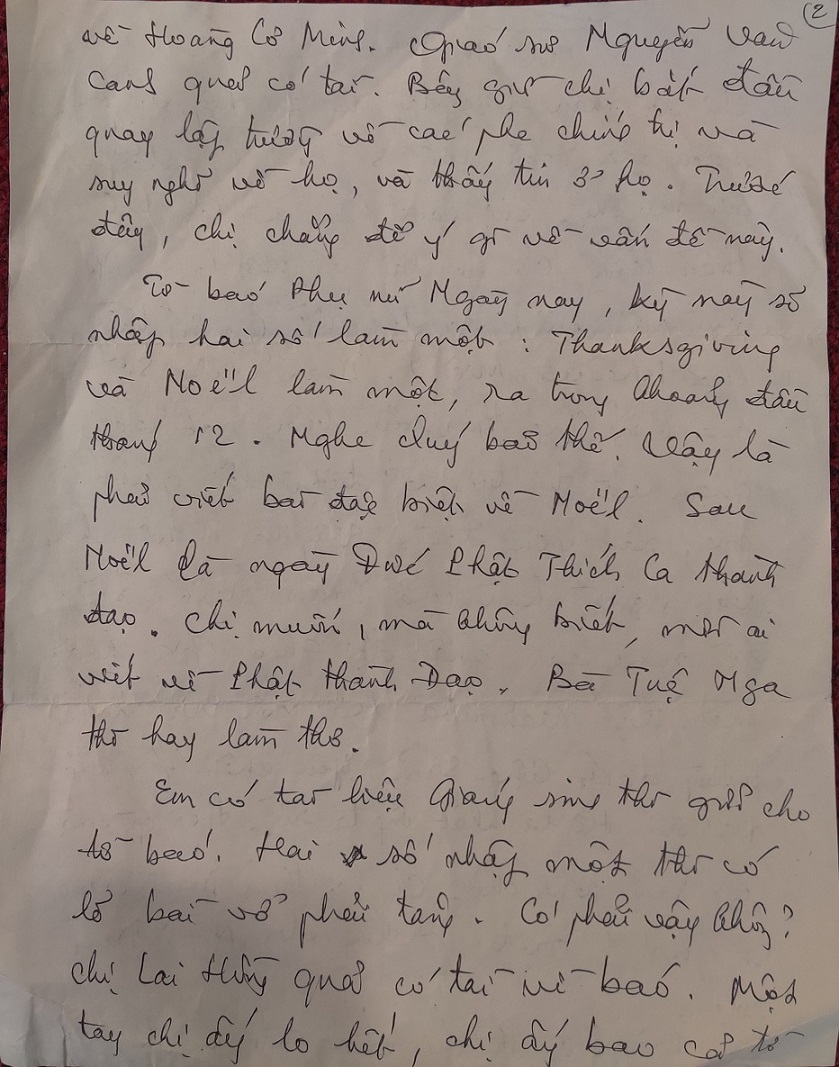 2
về Hoàng Cơ Minh. Giáo sư Nguyễn Văn
Canh quả có tài. Bây giờ chị bắt đầu
quay lập trường về các phe chính trị và
suy nghĩ về họ, và thấy tin ở họ. Trước
đây, chị chẳng để ý gì về vấn đề này.
Tờ báo Phụ nữ Ngày nay, kỳ này số
nhập hai số làm một : Thanksgiving
và Noël làm một, ra trong khoảng đầu
tháng 12. Nghe Quý bảo thế. Vậy là
phải viết bài đặc biệt về Noël. Sau
Noël là ngày Đức Phật Thích Ca thành
đạo. Chị muốn, mà không biết, mời ai
viết về Phật thành Đạo. Bà Tuệ Nga
thì hay làm thơ.
Em có tài liệu Giáng sinh thì gửi cho
tờ báo. Hai số nhập một thì có
lẽ bài vở phải tăng. Có phải vậy không?
Chị Lai Hồng quả có tài về báo. Một
tay chị ấy lo hết, chị ấy bao cả tờ